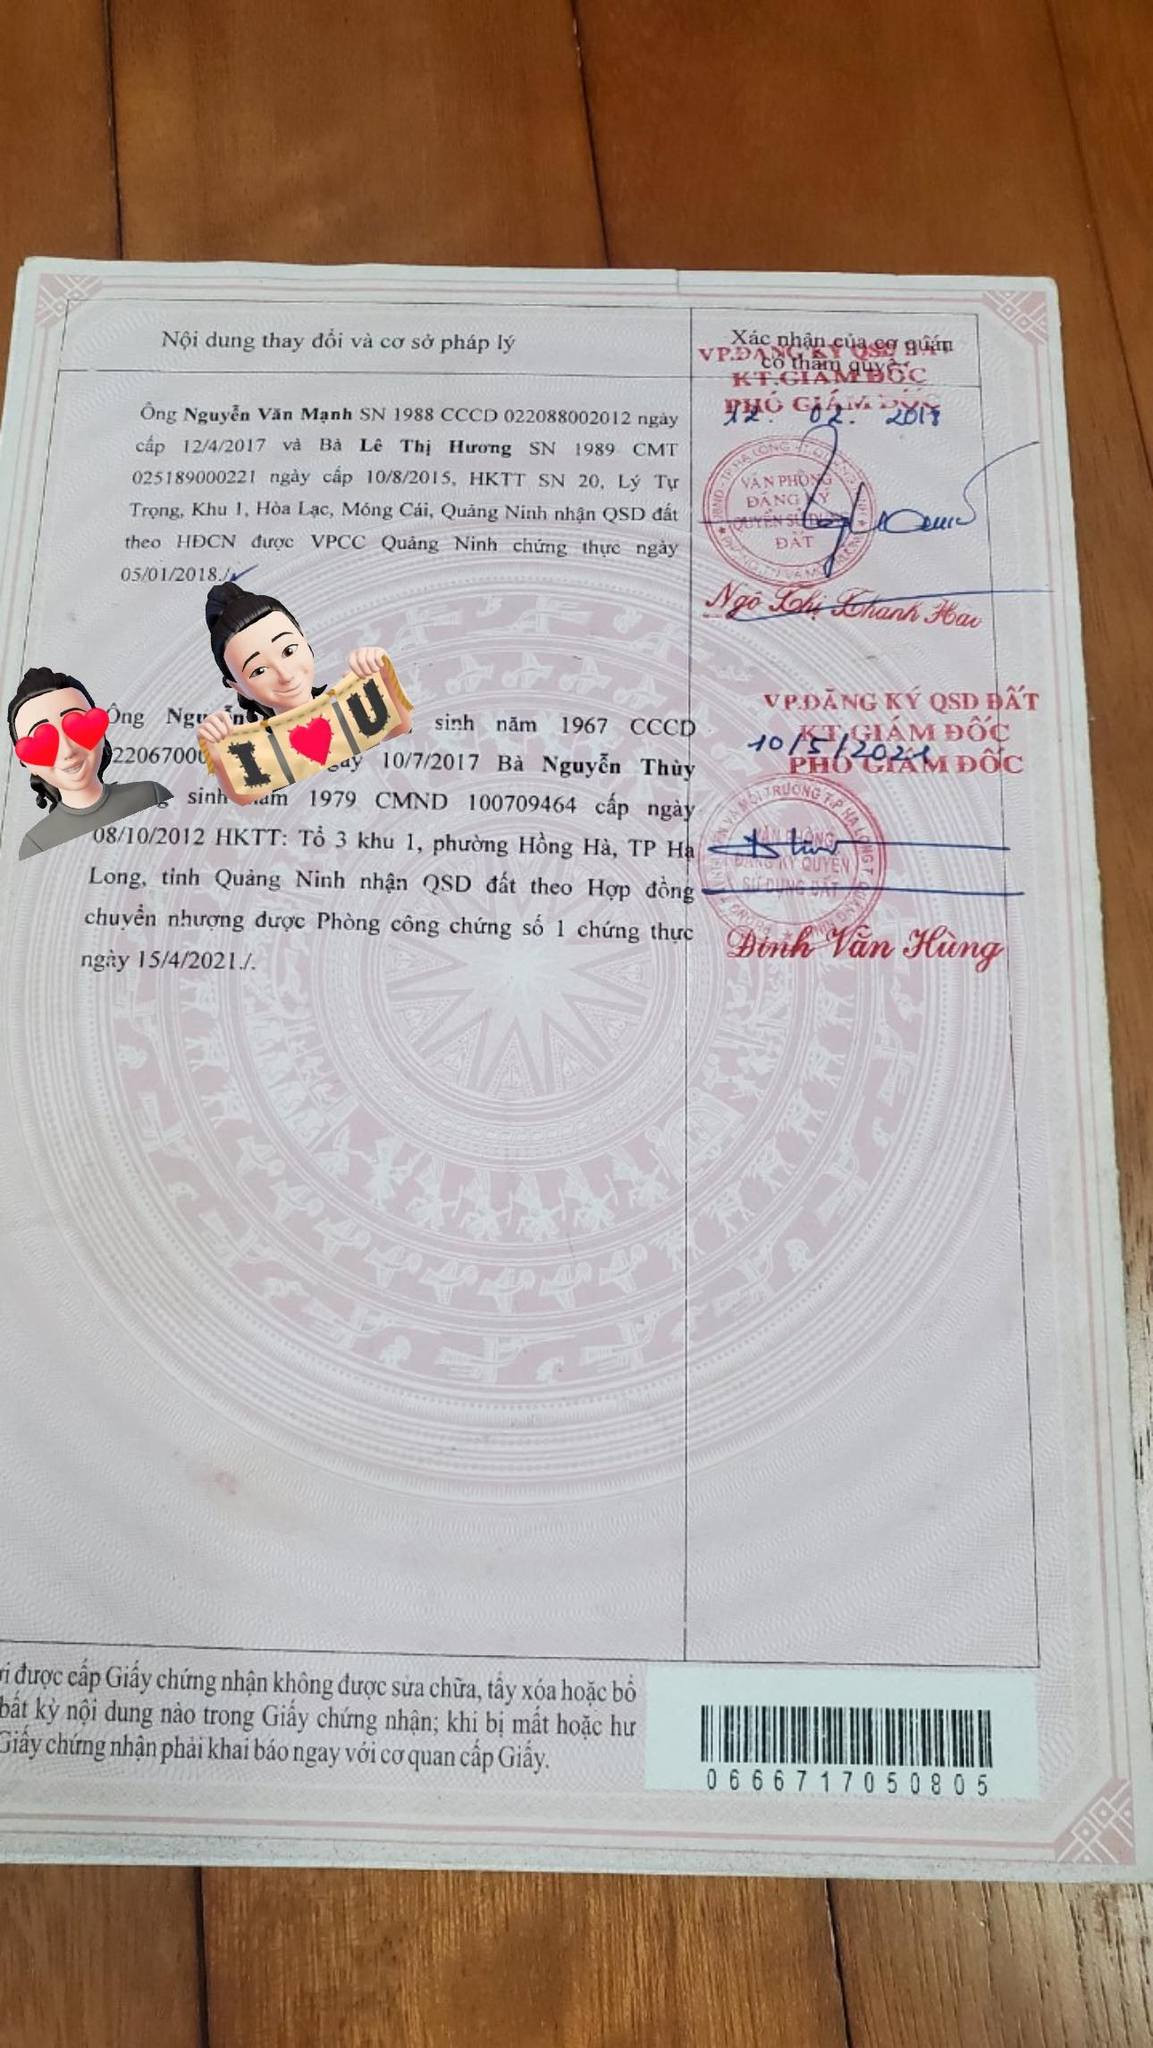 Nội dung thay đổi và cơ sở pháp lý
Xác nhận của cơ quan
có thẩm quyền
Ông Nguyễn Văn Mạnh SN 1988 CCCD 022088002012 ngày
cấp 12/4/2017 và Bà Lê Thị Hương SN 1989 CMT
025189000221 ngày cấp 10/8/2015, HKTT SN 20, Lý Tự
Trọng, Khu 1, Hòa Lạc, Móng Cái, Quảng Ninh nhận QSD đất
theo HĐCN được VPCC Quảng Ninh chứng thực ngày
05/01/2018./.
VP.ĐĂNG KÝ QSD ĐẤT
KT.GIÁM ĐỐC
PHÓ GIÁM ĐỐC
12. 02. 2018
VĂN PHÒNG
ĐĂNG KÝ
QUYỀN SỬ DỤNG
ĐẤT
Ngô Thị Thanh Hải
Ông sinh năm 1967 CCCD
10/7/2017 Bà Nguyễn Thùy
sinh năm 1979 CMND 100709464 cấp ngày
08/10/2012 HKTT: Tổ 3 khu 1, phường Hồng Hà, TP Hạ
Long, tỉnh Quảng Ninh nhận QSD đất theo Hợp đồng
chuyển nhượng được Phòng công chứng số 1 chứng thực
ngày 15/4/2021./.
VP.ĐĂNG KÝ QSD ĐẤT
KT.GIÁM ĐỐC
10/5/2021
PHÓ GIÁM ĐỐC
VĂN PHÒNG
ĐĂNG KÝ QUYỀN
SỬ DỤNG ĐẤT
Đinh Văn Hùng
I U
được cấp Giấy chứng nhận không được sửa chữa, tẩy xóa hoặc bổ
bất kỳ nội dung nào trong Giấy chứng nhận; khi bị mất hoặc hư
Giấy chứng nhận phải khai báo ngay với cơ quan cấp Giấy.
0666717050805